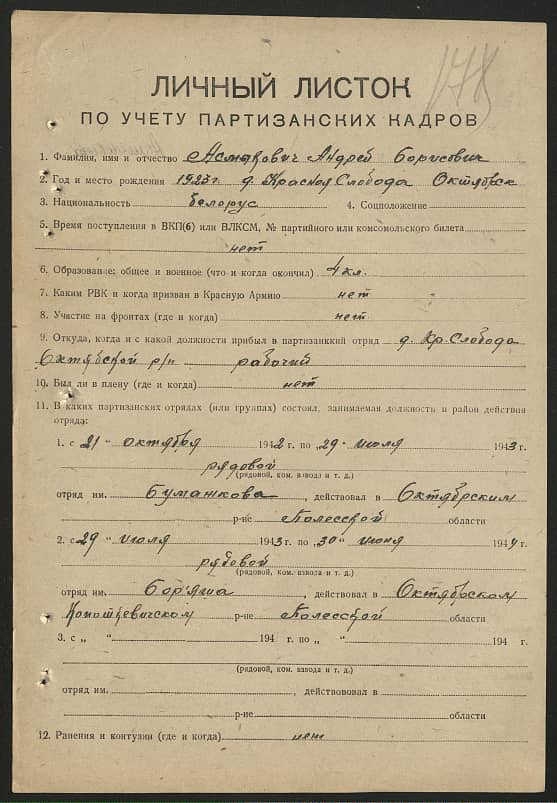 178
ЛИЧНЫЙ ЛИСТОК
ПО УЧЕТУ ПАРТИЗАНСКИХ КАДРОВ
1. Фамилия, имя и отчество Асмакович Андрей Борисович
2. Год и место рождения 1923 г. д. Красная Слобода Октябрьск
3. Национальность белорус 4. Соцположение
5. Время поступления в ВКП(б) или ВЛКСМ, № партийного или комсомольского билета
нет
6. Образование: общее и военное (что и когда окончил) 4 кл.
7. Каким РВК и когда призван в Красную Армию нет
8. Участие на фронтах (где и когда) нет
9. Откуда, когда и с какой должности прибыл в партизанский отряд д. Кр. Слобода
Октябской р/н рабочий
10. Был ли в плену (где и когда) нет
11. В каких партизанских отрядах (или группах) состоял, занимаемая должность и район действия
отряда:
1. с 21 " октября 1942 г. по "29" июля 1943 г.
рядовой
(рядовой, ком. взвода и т. д.)
отряд им. Бумажкова, действовал в Октябрским
р-не Полесской области
2. с 29 " июля 1943 г. по "30" июня 1944 г.
рядовой
(рядовой, ком. взвода и т. д.)
отряд им. , действовал в Октябрском
р-не Полесской области
3. с " " 194 г. по " " 194 г.
(рядовой, ком. взвода и т. д.)
отряд им. , действововал в
р-не области
12. Ранения и контузии (где и когда) нет